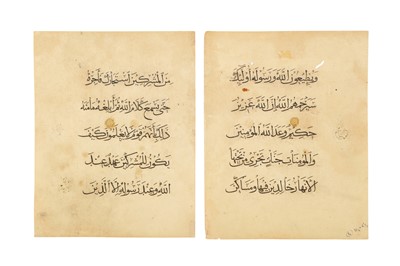 ويطيعون الله ورسوله أوليك
سيرحمهم الله إن الله عزيز
حكيم وعد الله المؤمنين
والمؤمنات جنات تجري من تحتها
الأنهار خالدين فيها ومساكن
من المشركين استجارك فأجره
حتى يسمع كلام الله ثم أبلغه مأمنه
ذلك بأنهم قوم لا يعلمون كيف
يكون للمشركين عهد عند
الله وعند رسوله إلا الذين